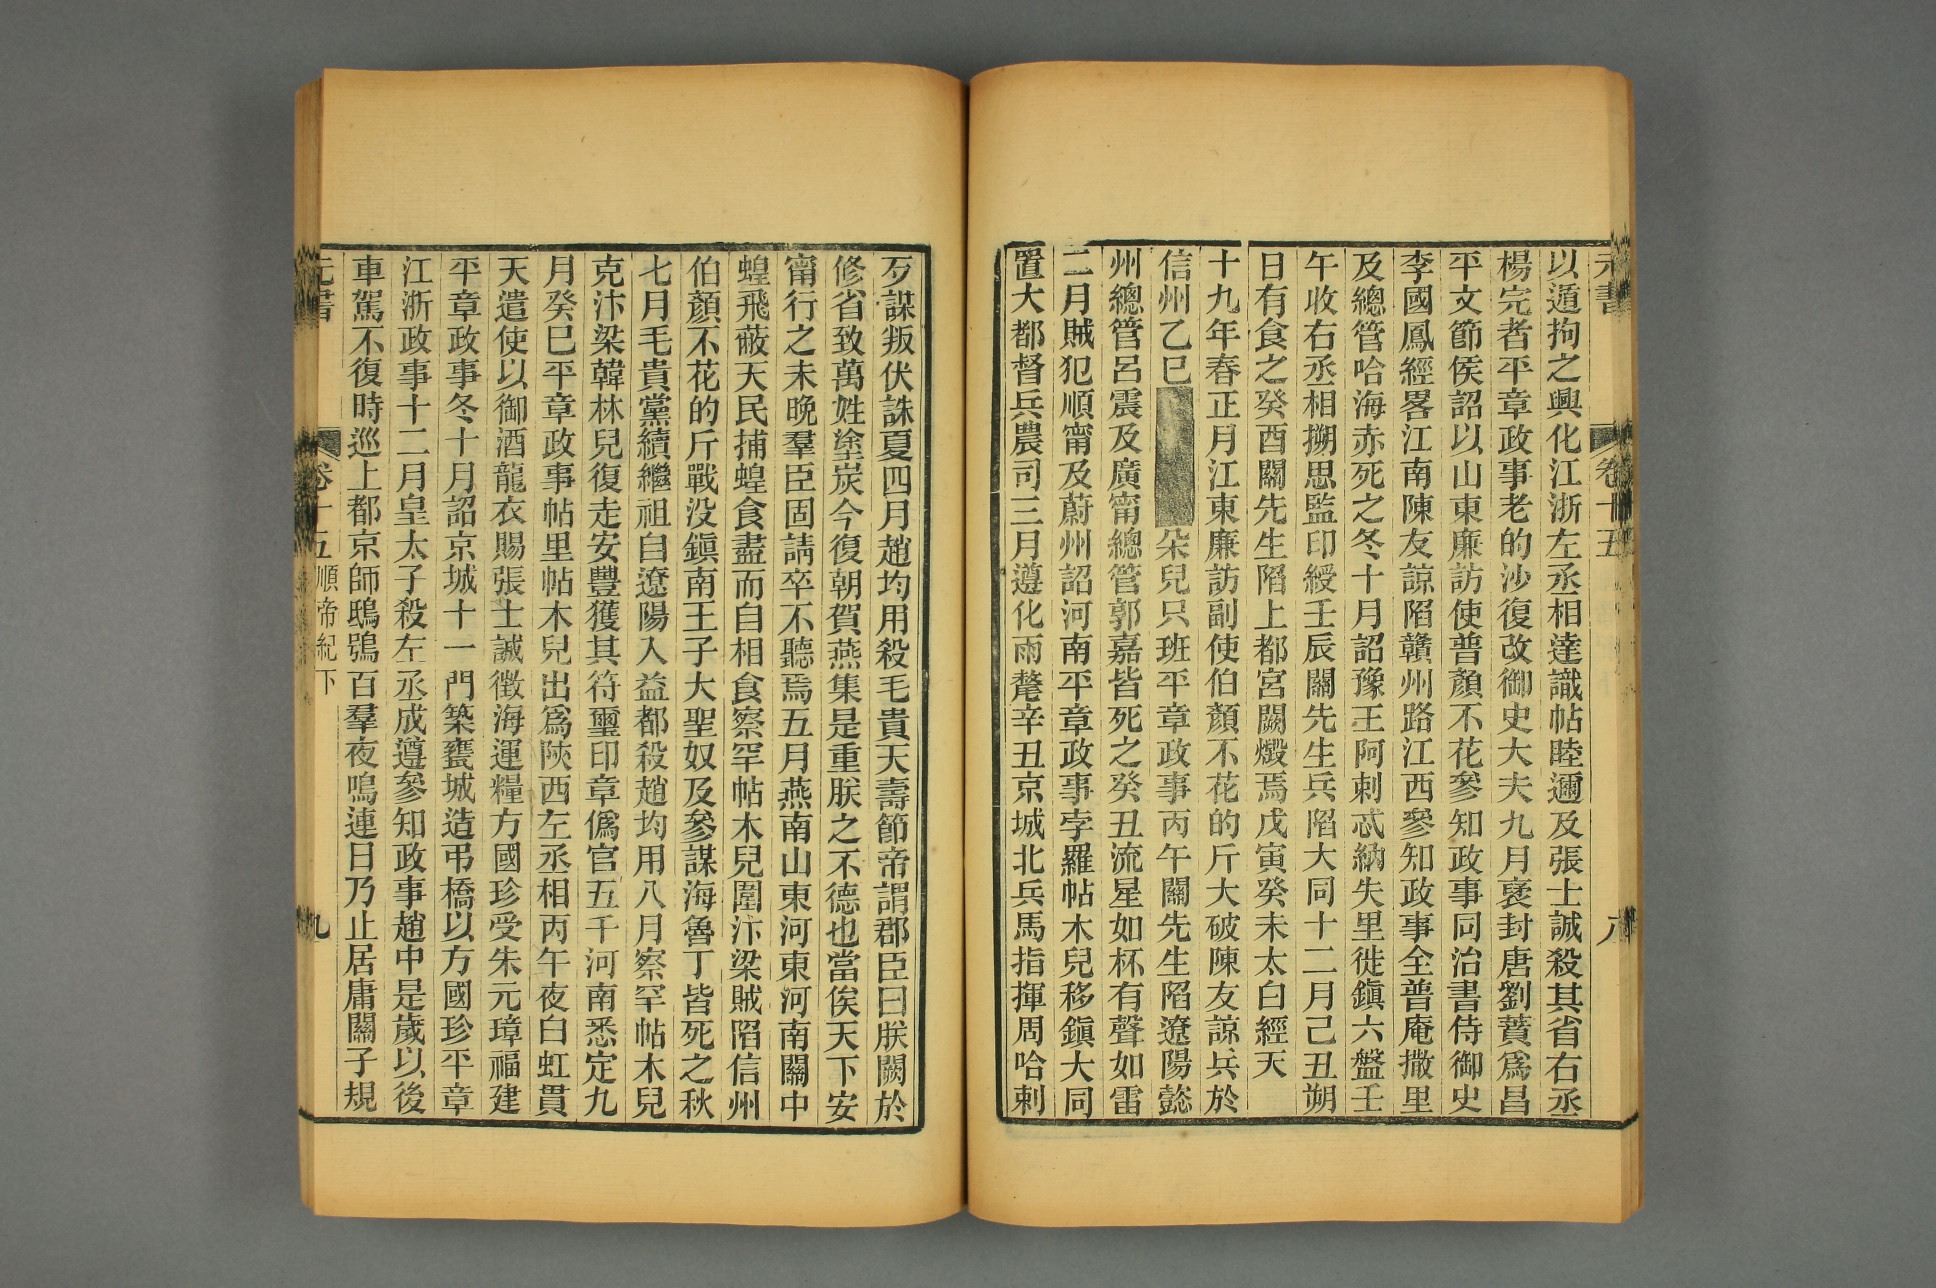 元書
卷十五
八
以遁拘之興化江浙左丞相達識帖睦邇及張士誠殺其省右丞
楊完者平章政事老的沙復改御史大夫九月褒封唐劉蕡爲昌
平文節侯詔以山東廉訪使普顏不花參知政事同治書侍御史
李國鳳經畧江南陳友諒陷贛州路江西參知政事全普庵撒里
及總管哈海赤死之冬十月詔豫王阿剌忒納失里徙鎮六盤壬
午收右丞相搠思監印綬壬辰關先生兵陷大同十二月己丑朔
日有食之癸酉關先生陷上都宮闕燬焉戊寅癸未太白經天
十九年春正月江東廉訪副使伯顏不花的斤大破陳友諒兵於
信州乙巳朵兒只班平章政事丙午關先生陷遼陽懿
州總管呂震及廣甯總管郭嘉皆死之癸丑流星如杯有聲如雷
二月賊犯順甯及蔚州詔河南平章政事孛羅帖木兒移鎮大同
置大都督兵農司三月遵化雨氂辛丑京城北兵馬指揮周哈剌
歹謀叛伏誅夏四月趙均用殺毛貴天壽節帝謂郡臣曰朕闕於
修省致萬姓塗炭今復朝賀燕集是重朕之不德也當俟天下安
甯行之未晚羣臣固請卒不聽焉五月燕南山東河東河南關中
蝗飛蔽天民捕蝗食盡而自相食察罕帖木兒圍汴梁賊陷信州
伯顏不花的斤戰没鎮南王子大聖奴及參謀海魯丁皆死之秋
七月毛貴黨續繼祖自遼陽入益都殺趙均用八月察罕帖木兒
克汴梁韓林兒復走安豐獲其符璽印章僞官五千河南悉定九
月癸巳平章政事帖里帖木兒出爲陝西左丞相丙午夜白虹貫
天遣使以御酒龍衣賜張士誠徵海運糧方國珍受朱元璋福建
平章政事冬十月詔京城十一門築甕城造弔橋以方國珍平章
江浙政事十二月皇太子殺左丞成遵參知政事趙中是歲以後
車駕不復時巡上都京師鴟鴞百羣夜鳴連日乃止居庸關子規
元書
卷十五順帝紀下
九